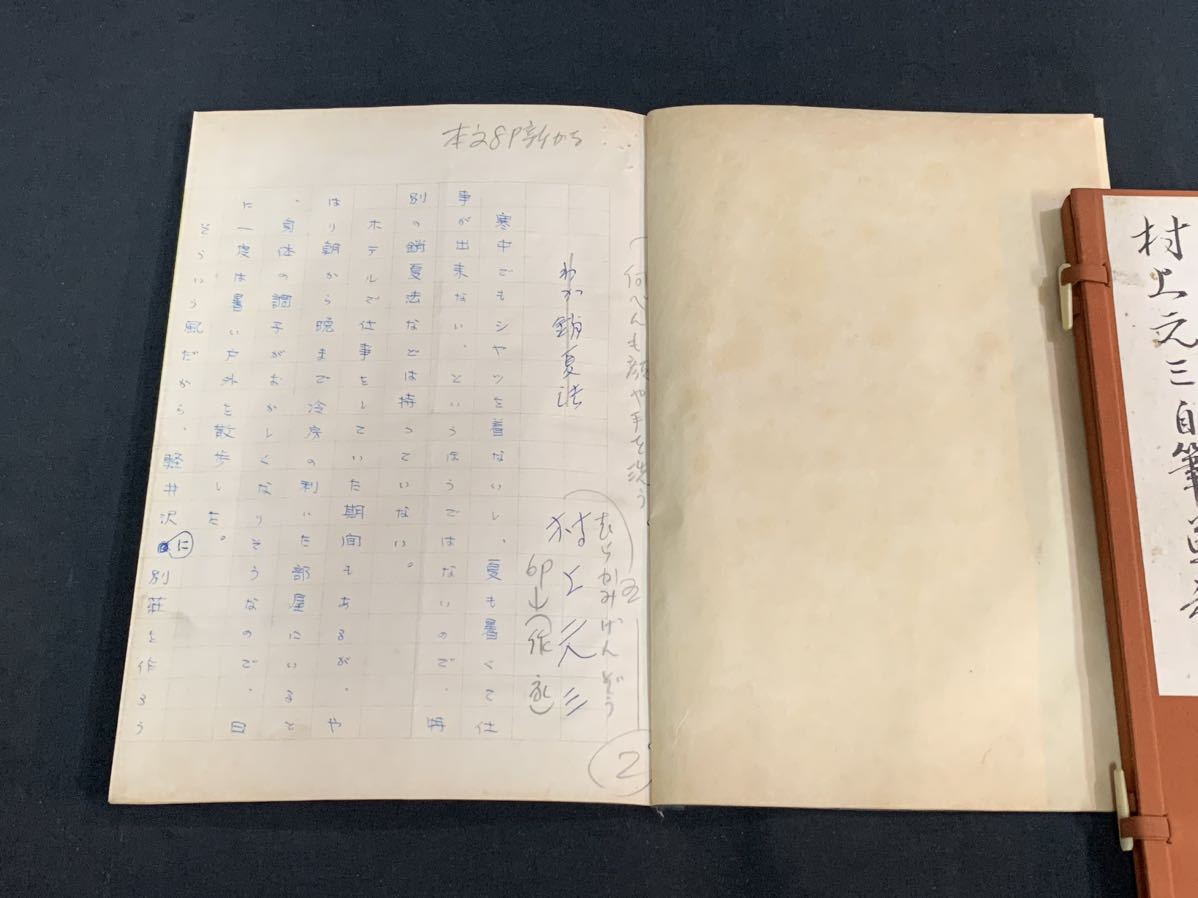 本文8P新から
何べんも顔や手を洗う
わが銷夏法
むらかみげんぞう
村上元三
6P
2
寒中でもシャツを着ないし、夏も暑くて仕
事が出来ない、というほうではないので、特
別の銷夏法などは持っていない。
ホテルで仕事をしていた期間もあるが、や
はり朝から晩まで冷房の利いた部屋にいると
、身体の調子がおかしくなりそうなので、日
に一度は暑い戸外を散歩した。
そういう風だから、軽井沢に別荘を作ろう
村上元三自筆